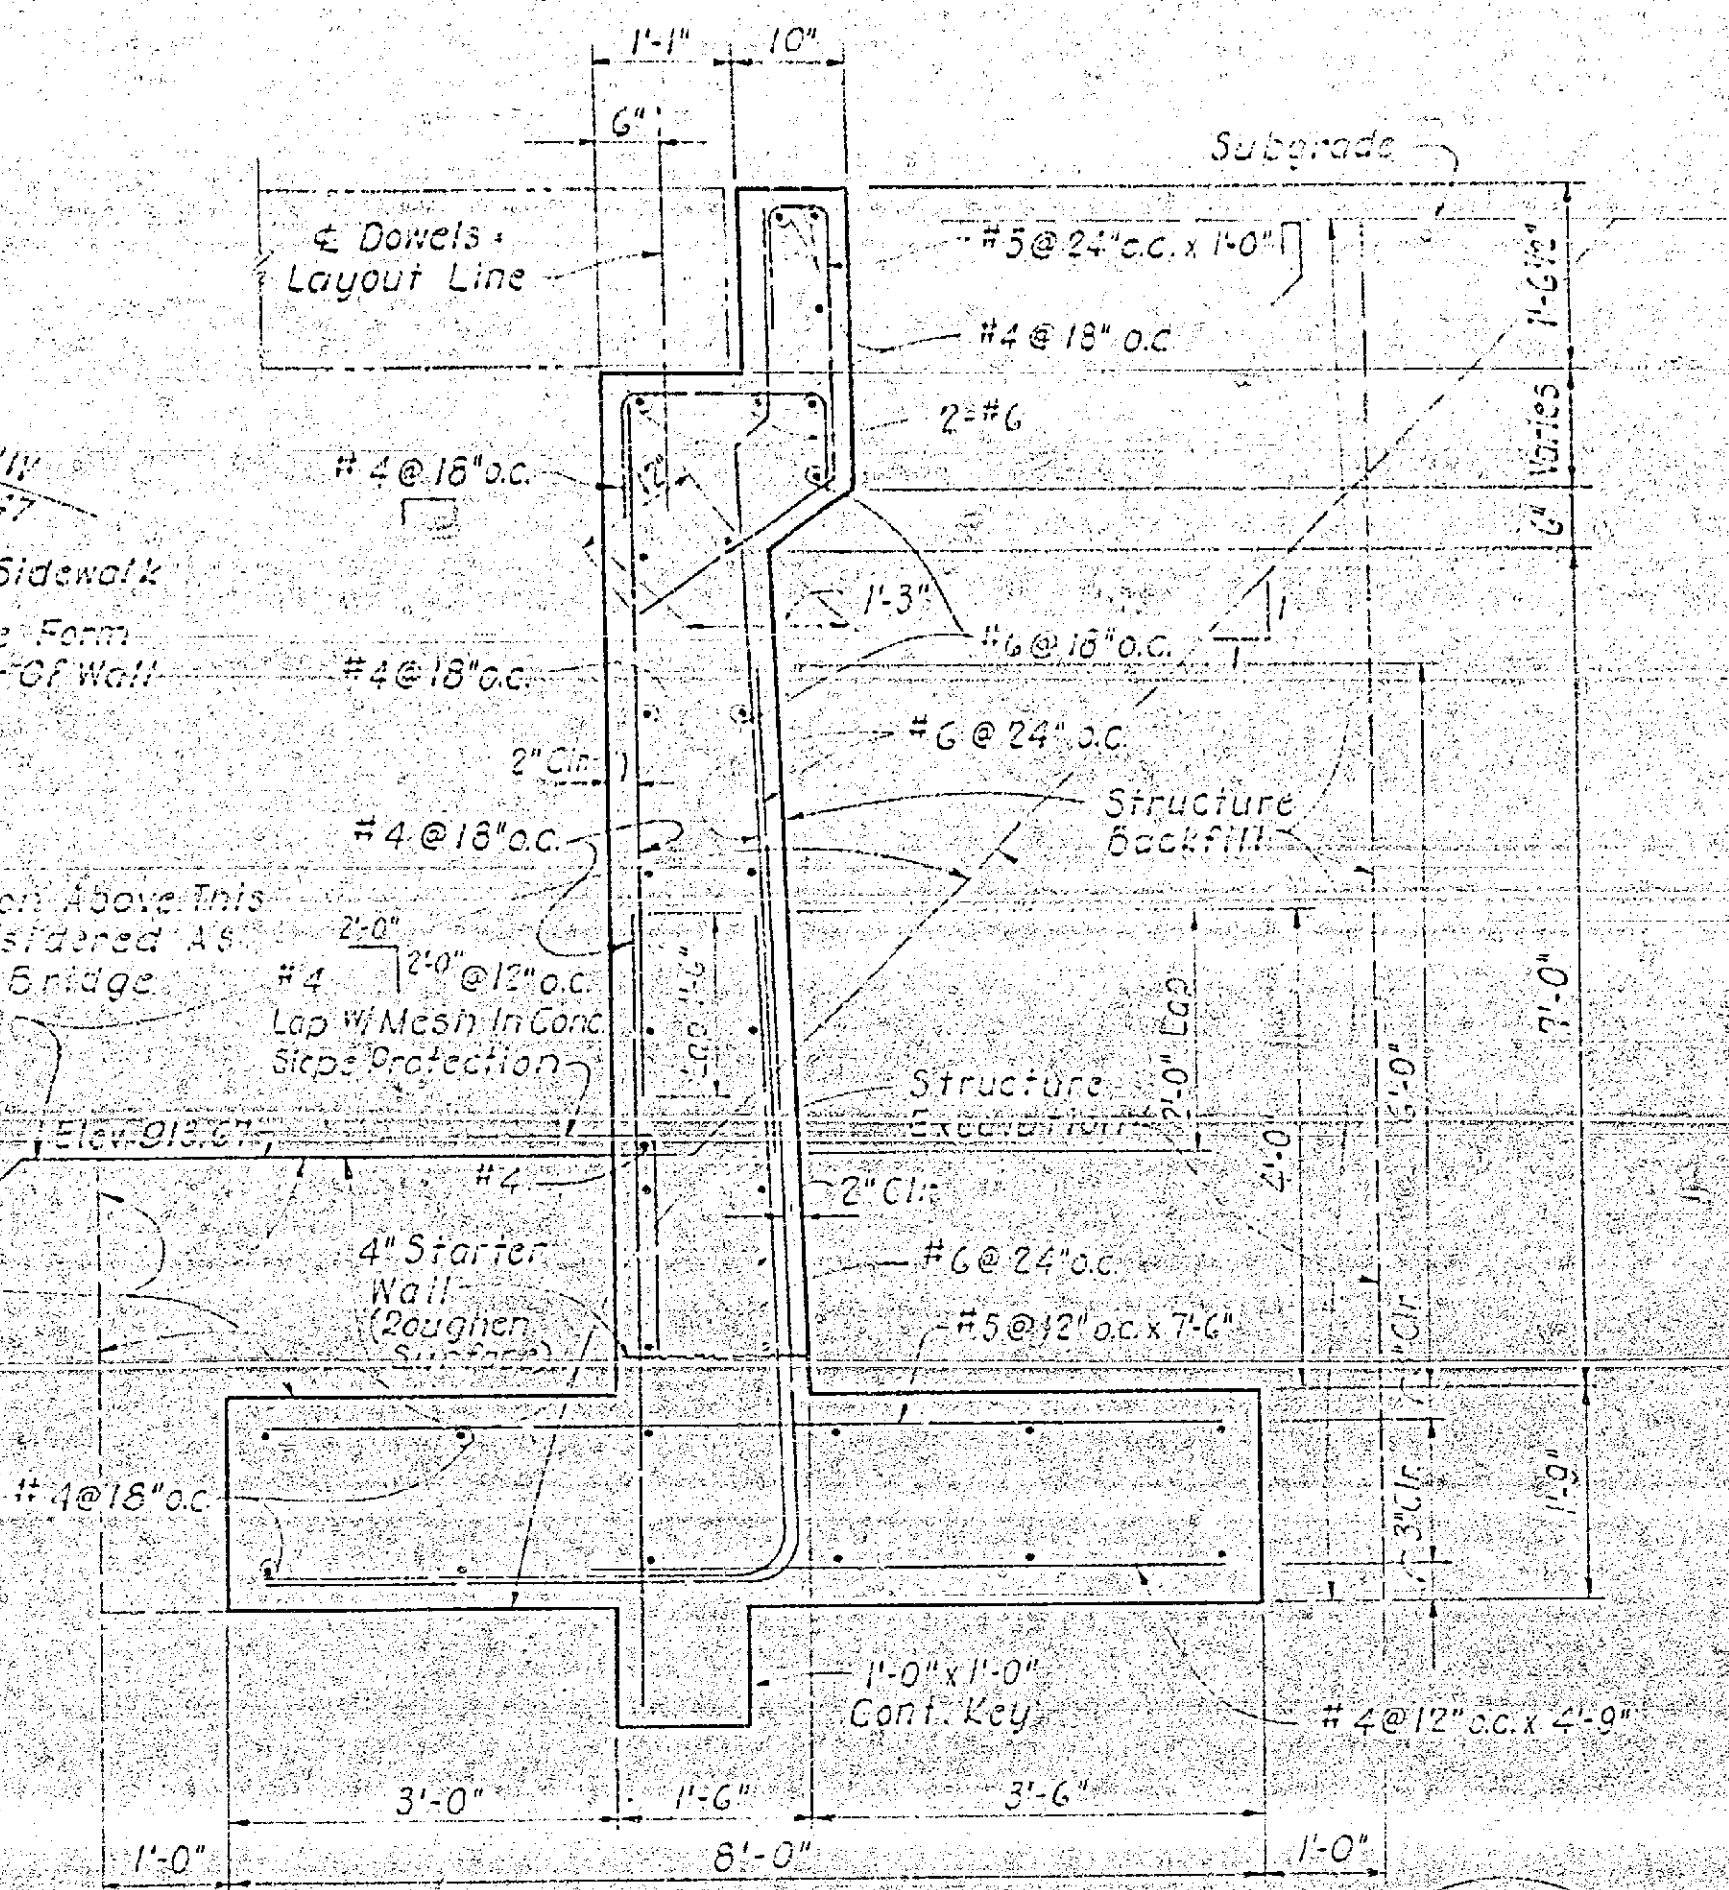 1'-1"
10"
6"
Subgrade
₵ Dowels &
Layout Line
#5 @ 24" o.c. x 1'-0"
#4 @ 18" o.c.
2-#6
Varies
6"
#4 @ 18" o.c.
12"
Sidewalk
Form
Of Wall
1'-3"
1
1
#6 @ 18" o.c.
#4 @ 18" o.c.
#6 @ 24" o.c.
2" Clr.
Structure
Backfill
#4 @ 18" o.c.
Above This
As
Bridge
2'-0"
#4 2'-0" @ 12" o.c.
Lap W/Mesh In Conc.
Slope Protection
2'-0" Lap
7'-0"
Structure
Elev. 913.67
4'-0"
#4
2" Clr.
4" Starter
Wall
(Roughen
Surface)
#6 @ 24" o.c.
#5 @ 12" o.c. x 7'-6"
3" Clr.
#4 @ 18" o.c.
3" Clr.
1'-9"
1'-0" x 1'-0"
Cont. Key
#4 @ 12" o.c. x 4'-9"
3'-0"
1'-6"
3'-6"
1'-0"
8'-0"
1'-0"